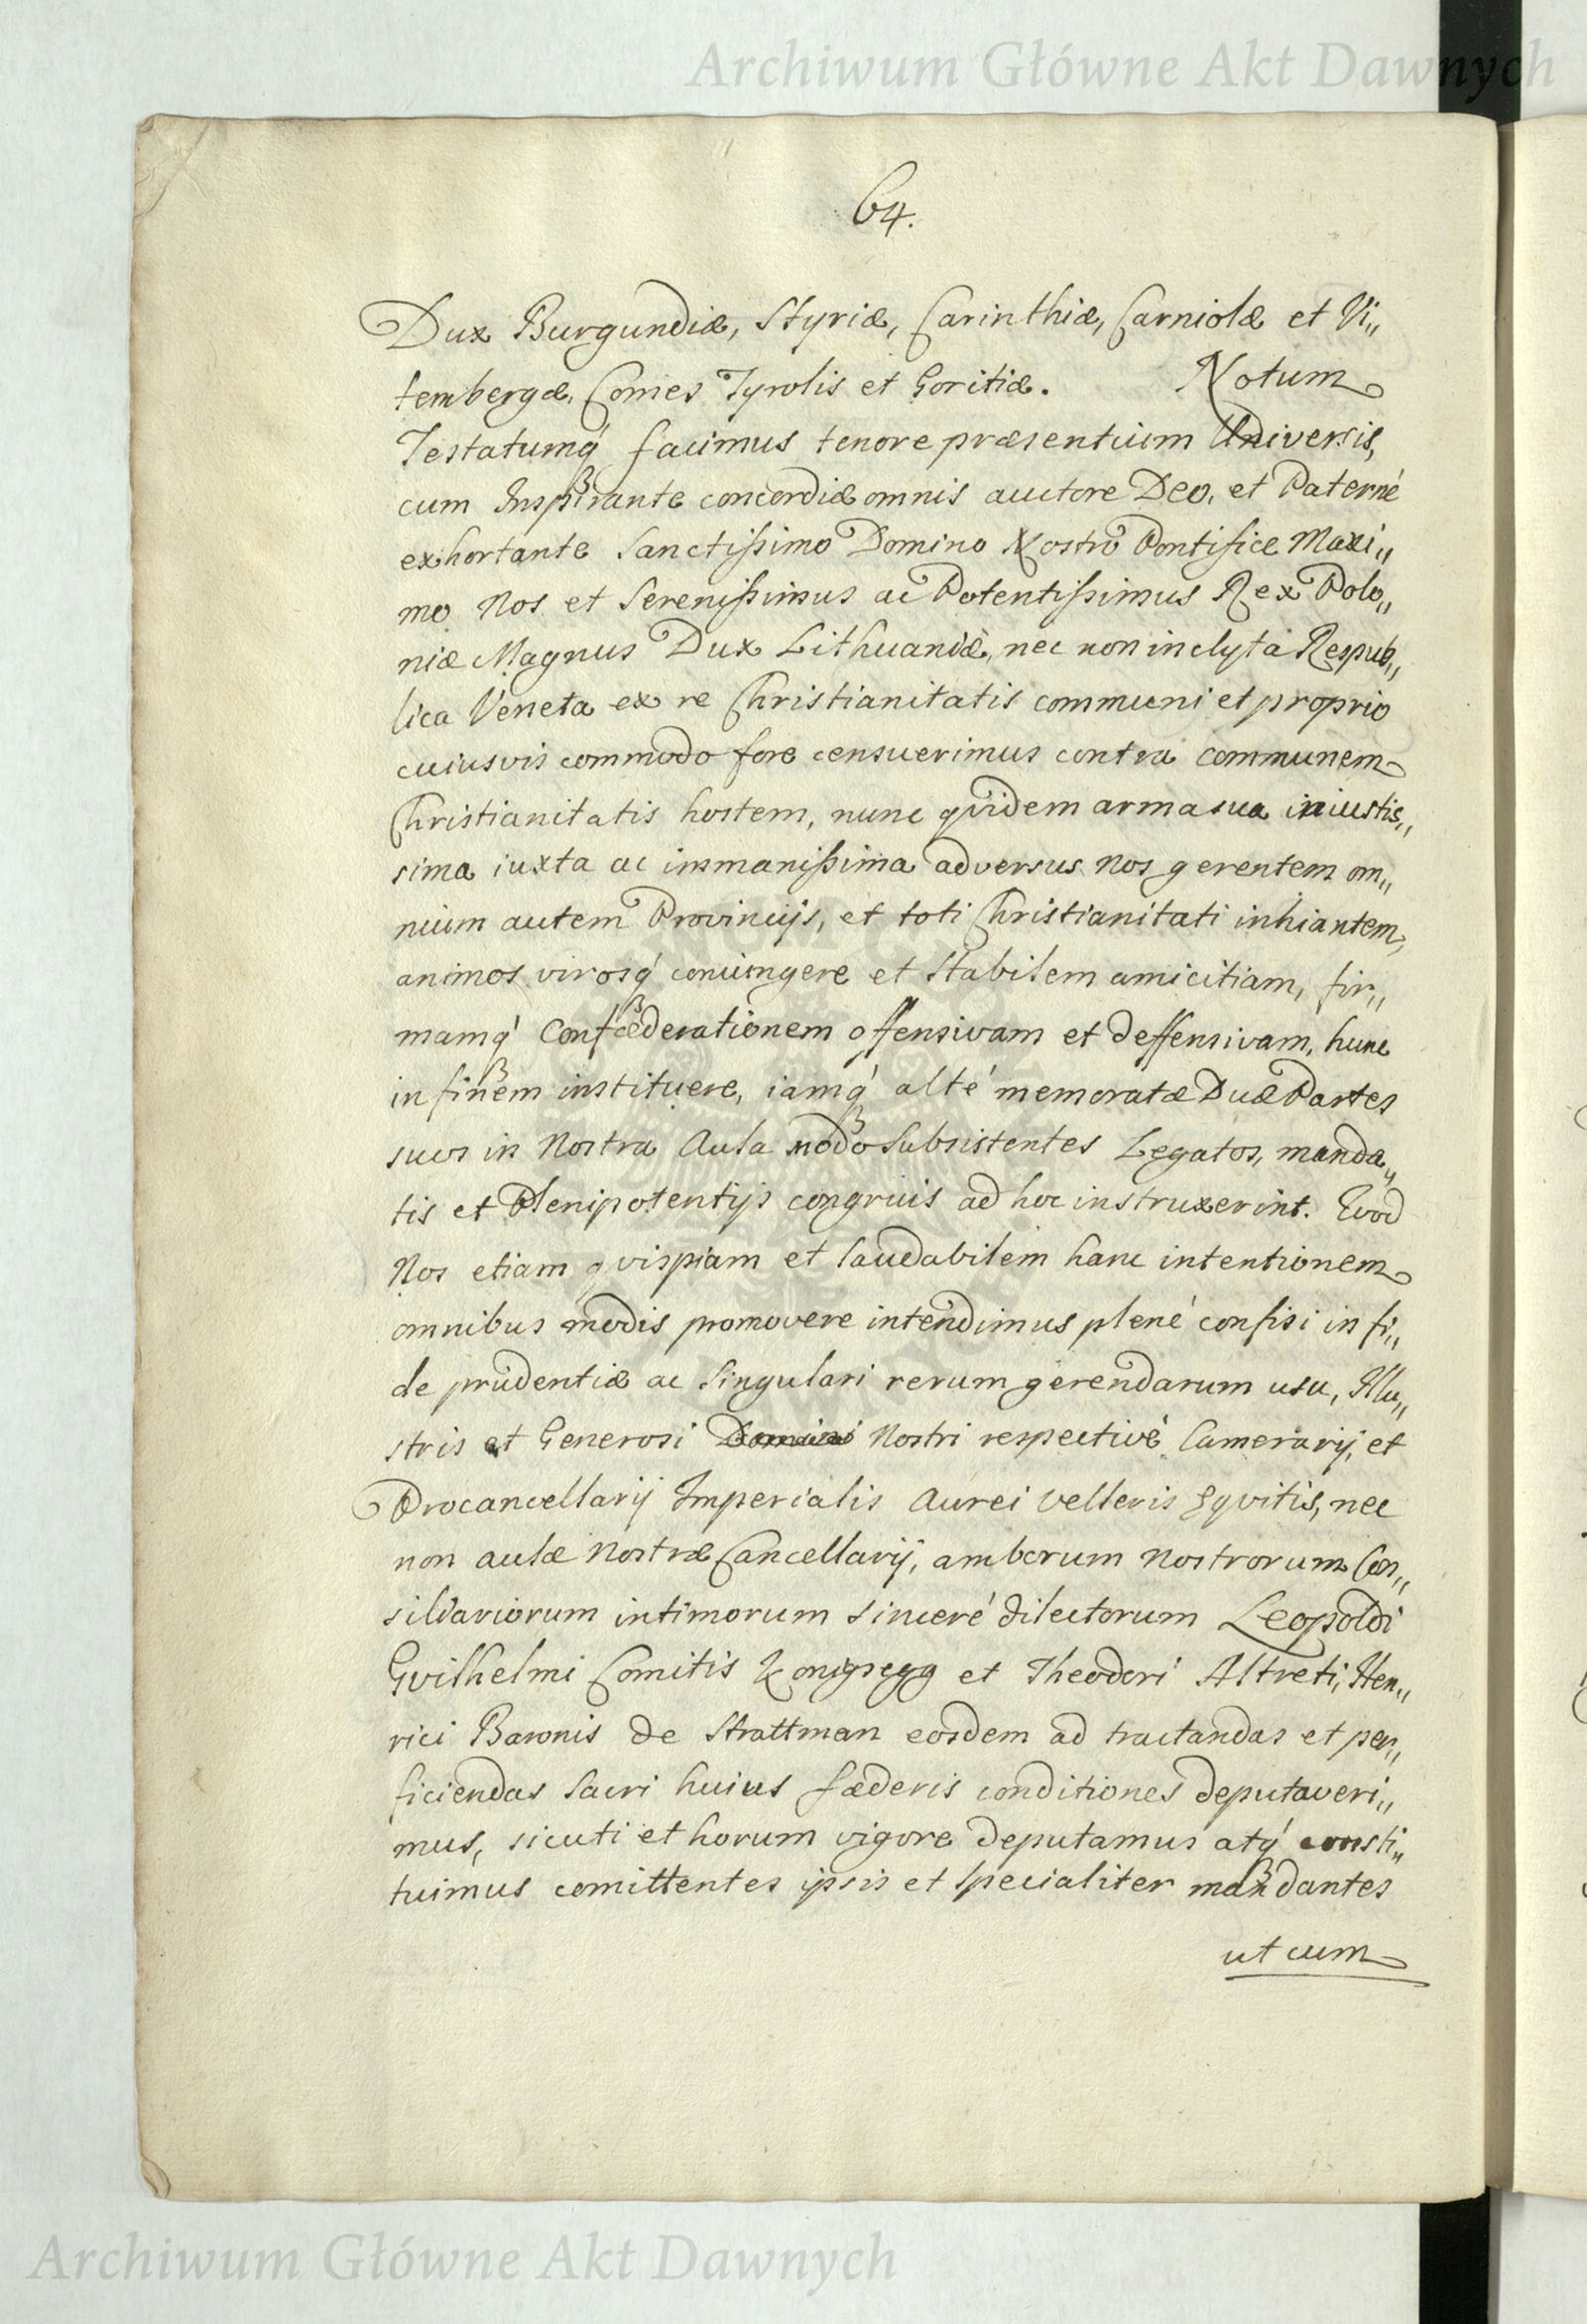 Archiwum Główne Akt Dawnych
64.
Dux Burgundiæ, Styriæ, Carinthiæ, Carniolæ et Vi„
tembergæ, Comes Tyrolis et Goritiæ. Notum
Testatumq́ facimus tenore præsentium Universis,
cum Inspirante concordiæ omnis auctore Deo, et Paterné
exhortante Sanctissimo Domino Nostro Pontifice Maxi„
mo Nos et Serenissimus ac Potentissimus Rex Polo„
niæ Magnus Dux Lithuaniæ, nec non inclyta Respub„
lica Veneta ex re Christianitatis communi et proprio
cuiusvis commodo fore censuerimus contra communem
Christianitatis hostem, nunc qvidem arma sua iniustis„
sima iuxta ac immanissima adversus Nos gerentem om„
nium autem Provincijs, et toti Christianitati inhiantem,
animos virosq́ coniungere et stabilem amicitiam, fir„
mamq́ Confæderationem offensivam et deffensivam, hunc
in finem instituere, iamq́ alté memoratæ Duæ Partes
suos in Nostra Aula modo subsistentes Legatos, manda„
tis et Plenipotentijs congruis ad hoc instruxerint. Qvod
Nos etiam qvispiam et laudabilem hanc intentionem
omnibus modis promovere intendimus plené confisi in fi„
de prudentiæ ac singulari rerum gerendarum usu, Illu„
stris et Generosi Nostri respectivé Camerarij, et
Procancellarij Imperialis Aurei Velleris Eqvitis, nec
non aulæ Nostræ Cancellarij, amborum Nostrorum Con„
siliariorum intimorum sinceré dilectorum Leopoldi
Gvilhelmi Comitis Konigsegg et Theodori Altreti, Hen„
rici Baronis de Strattman eosdem ad tractandas et per„
ficiendas Sacri huius fæderis conditiones deputaveri„
mus, sicuti et horum vigore deputamus atq́ consti„
tuimus comittentes ipsis et specialiter mandantes
ut cum
Archiwum Główne Akt Dawnych